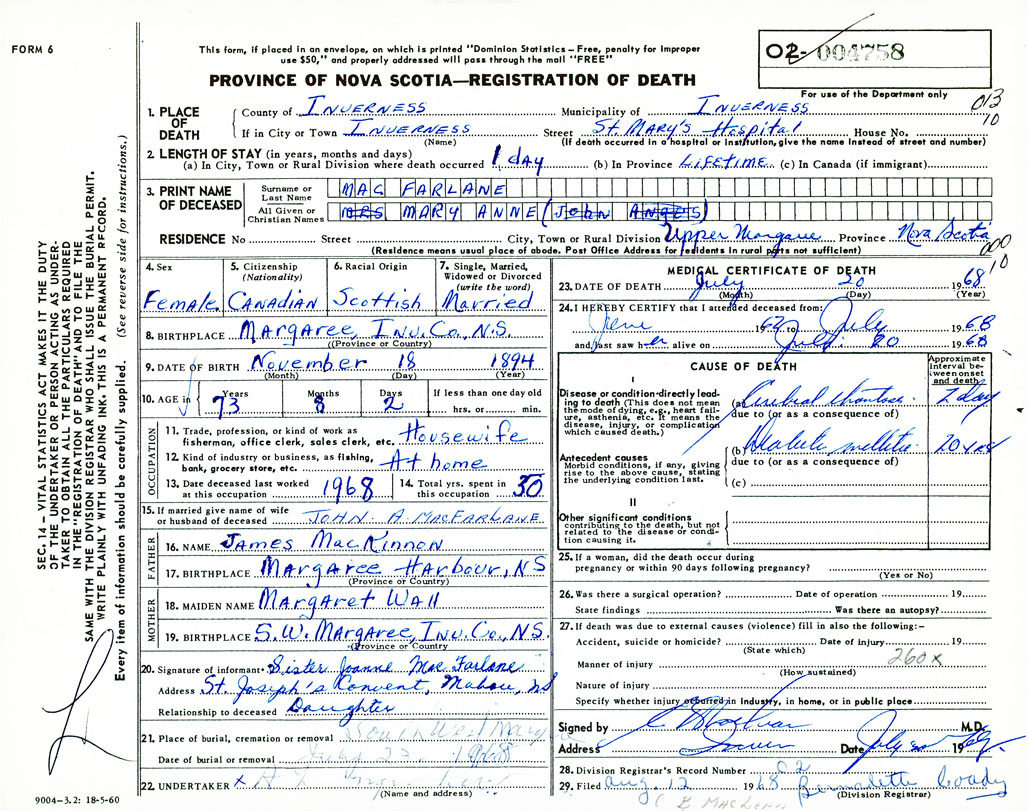 FORM 6
This form, if placed in an envelope, on which is printed "Dominion Statistics – Free, penalty for improper
use $50," and properly addressed will pass through the mail "FREE"
O2- 004758
PROVINCE OF NOVA SCOTIA—REGISTRATION OF DEATH
For use of the Department only
013
10
1. PLACE OF DEATH
County of INVERNESS Municipality of INVERNESS
If in City or Town INVERNESS Street St. MARY'S Hospital House No.
(Name) (If death occurred in a hospital or institution, give the name instead of street and number)
2. LENGTH OF STAY (in years, months and days)
(a) In City, Town or Rural Division where death occurred 1 day (b) In Province LIFETIME (c) In Canada (if immigrant)
3. PRINT NAME OF DECEASED
Surname or Last Name MAC FARLANE
All Given or Christian Names MRS MARY ANNE (JOHN ANGUS)
RESIDENCE No Street City, Town or Rural Division Upper Margaree Province Nova Scotia
(Residence means usual place of abode. Post Office Address for residents in rural parts not sufficient)
000
10
4. Sex Female
5. Citizenship (Nationality) CANADIAN
6. Racial Origin Scottish
7. Single, Married, Widowed or Divorced (write the word) Married
8. BIRTHPLACE Margaree, Inv. Co., N.S.
(Province or Country)
9. DATE OF BIRTH November 18 1894
(Month) (Day) (Year)
10. AGE in Years 73 Months 8 Days 2 If less than one day old hrs. or min.
OCCUPATION
11. Trade, profession, or kind of work as fisherman, office clerk, sales clerk, etc. Housewife
12. Kind of industry or business, as fishing, bank, grocery store, etc. At home
13. Date deceased last worked at this occupation 1968 14. Total yrs. spent in this occupation 50
15. If married give name of wife or husband of deceased JOHN. A. MACFARLANE
FATHER
16. NAME James MacKinnon
17. BIRTHPLACE Margaree Harbour, NS
(Province or Country)
MOTHER
18. MAIDEN NAME Margaret Wall
19. BIRTHPLACE S.W. Margaree, Inv. Co., NS.
(Province or Country
20. Signature of informant Sister Joanne Mac Farlane
Address St. Joseph's Convent, Mabou, NS
Relationship to deceased Daughter
21. Place of burial, cremation or removal
Date of burial or removal 1968
22. UNDERTAKER x
(Name and address)
9004-3.2: 18-5-60
MEDICAL CERTIFICATE OF DEATH
23. DATE OF DEATH July 20 1968
(Month) (Day) (Year)
24. I HEREBY CERTIFY that I attended deceased from:
June to July 1968
and last saw her alive on July 20 1968
CAUSE OF DEATH
Approximate interval between onset and death
I
Disease or condition directly leading to death (This does not mean the mode of dying, e.g., heart failure, asthenia, etc. It means the disease, injury, or complication which caused death.)
(a) Cerebral
due to (or as a consequence of)
(b) Diabetes mellitus 20 yrs
due to (or as a consequence of)
Antecedent causes
Morbid conditions, if any, giving rise to the above cause, stating the underlying condition last.
(c)
II
Other significant conditions
contributing to the death, but not related to the disease or condition causing it.
25. If a woman, did the death occur during pregnancy or within 90 days following pregnancy?
(Yes or No)
26. Was there a surgical operation? Date of operation 19
State findings Was there an autopsy?
27. If death was due to external causes (violence) fill in also the following:–
Accident, suicide or homicide? Date of injury 19
(State which)
260x
Manner of injury
(How sustained)
Nature of injury
Specify whether injury occurred in industry, in home, or in public place
Signed by M.D.
Address Date July 20 19
28. Division Registrar's Record Number 02
29. Filed Aug. 12 1968. Bernadette Coady
(Division Registrar)
C B MACLEAN
SEC. 14 – VITAL STATISTICS ACT MAKES IT THE DUTY
OF THE UNDERTAKER OR PERSON ACTING AS UNDER-
TAKER TO OBTAIN ALL THE PARTICULARS REQUIRED
IN THE "REGISTRATION OF DEATH" AND TO FILE THE
SAME WITH THE DIVISION REGISTRAR WHO SHALL ISSUE THE BURIAL PERMIT.
WRITE PLAINLY WITH UNFADING INK. THIS IS A PERMANENT RECORD.
Every item of information should be carefully supplied. (See reverse side for instructions.)